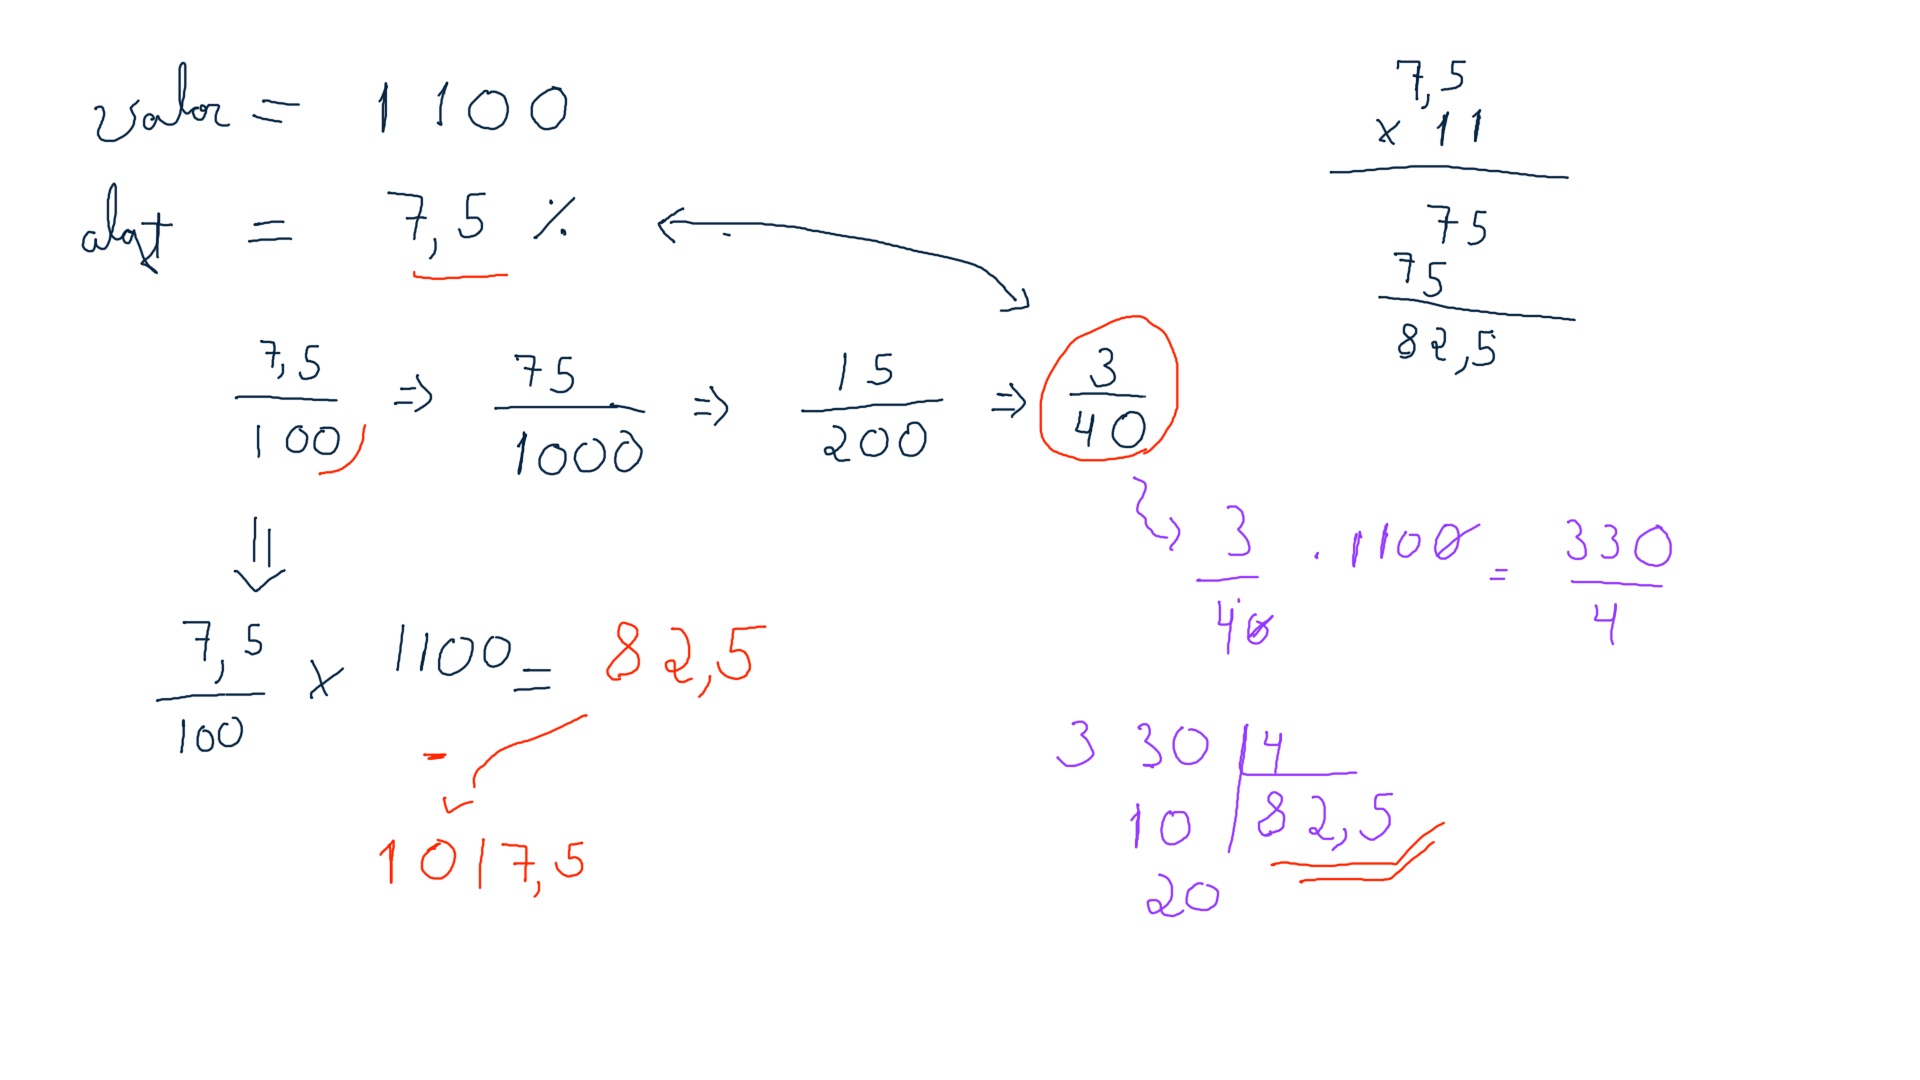 valor = 1100
alqt = 7,5 %
7,5/100 ⇒ 75/1000 ⇒ 15/200 ⇒ 3/40
7,5/100 x 1100 = 82,5
-
1017,5
7,5
x 11
75
75
82,5
3/40 . 1100 = 330/4
330 |4
10 82,5
20